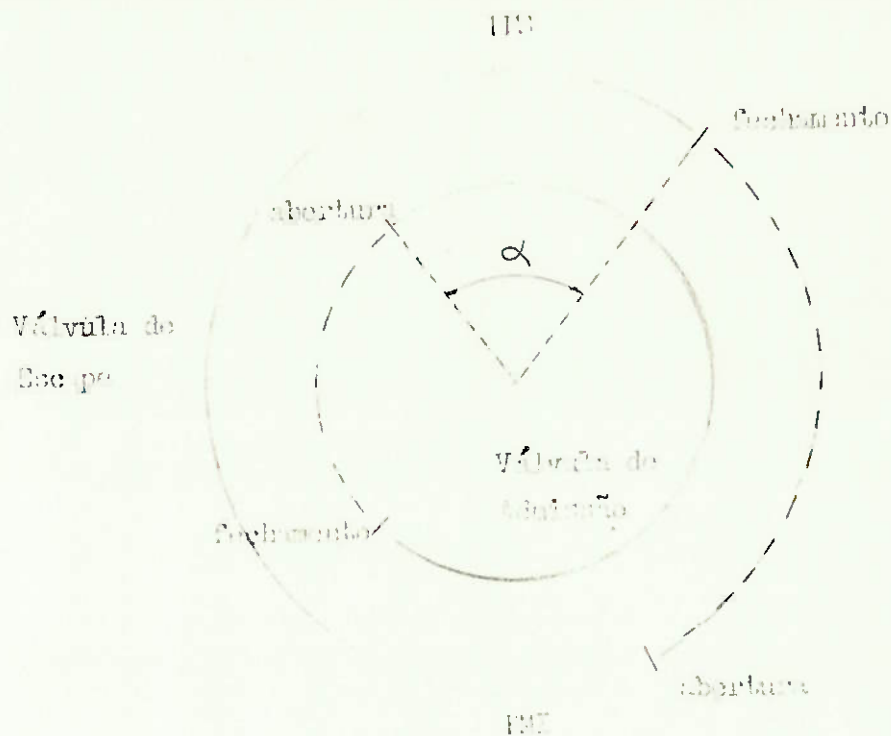 fechamento
abertura
α
Válvula de
Escape
Válvula de
Admissão
fechamento
abertura
PMI